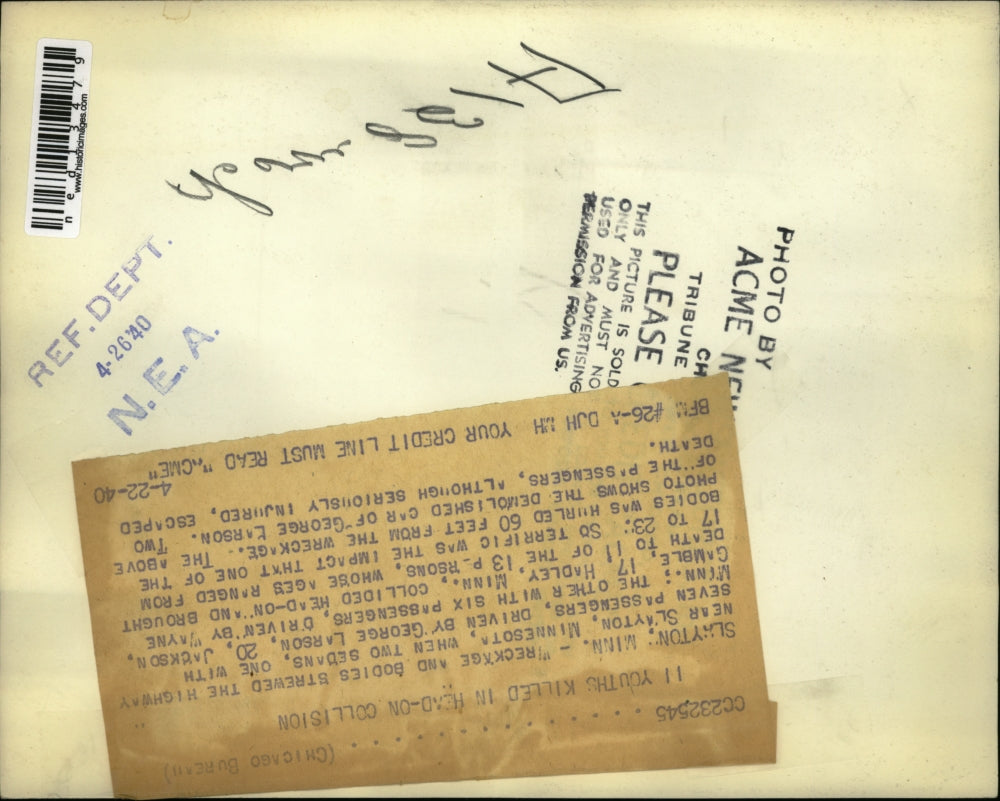 ned 13479
www.historicimages.com
REF. DEPT.
4-26'40
N.E.A.
PHOTO BY
ACME NEW
CH
TRIBUNE
PLEASE
THIS PICTURE IS SOLD
ONLY AND MUST NO
USED FOR ADVERTISING
PERMISSION FROM US.
CC232545 (CHICAGO BUREAU)
11 YOUTHS KILLED IN HEAD-ON COLLISION
SLAYTON, MINN. - WRECKAGE AND BODIES STREWED THE HIGHWAY
NEAR SLAYTON, MINNESOTA, WHEN TWO SEDANS, ONE WITH
SEVEN PASSENGERS, DRIVEN BY GEORGE LARSON, 20, JACKSON,
MINN.; THE OTHER WITH SIX PASSENGERS, DRIVEN BY WAYNE
GAMBLE, 17, HADLEY, MINN., COLLIDED HEAD-ON, AND BROUGHT
DEATH TO 11 OF THE 13 P RSONS, WHOSE AGES RANGED FROM
17 TO 23. SO TERRIFIC WAS THE IMPACT THAT ONE OF THE
BODIES WAS HURLED 60 FEET FROM THE WRECKAGE. THE ABOVE
PHOTO SHOWS THE DEMOLISHED CAR OF GEORGE LARSON. TWO
OF THE PASSENGERS, ALTHOUGH SERIOUSLY INJURED, ESCAPED
DEATH.
4-22-40
BFM #26-A DJH WH YOUR CREDIT LINE MUST READ "ACME"